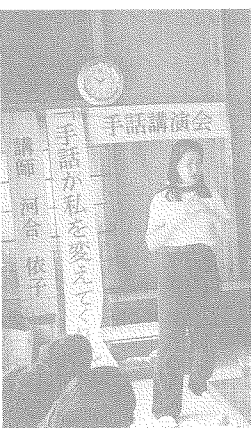 手話講演会
「手話が私を変えてく
講師 河合 依子